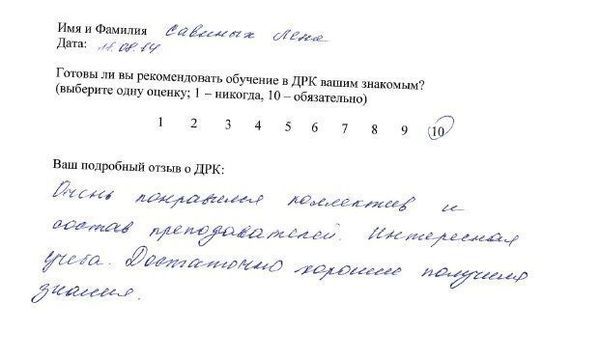 Имя и Фамилия Савиных Лена
Дата: 18.08.14
Готовы ли вы рекомендовать обучение в ДРК вашим знакомым?
(выберите одну оценку; 1 – никогда, 10 – обязательно)
1 2 3 4 5 6 7 8 9 10
Ваш подробный отзыв о ДРК:
Очень понравился коллектив и
состав преподавателей. Интересная
учеба. Достаточно хорошие получила
знания.